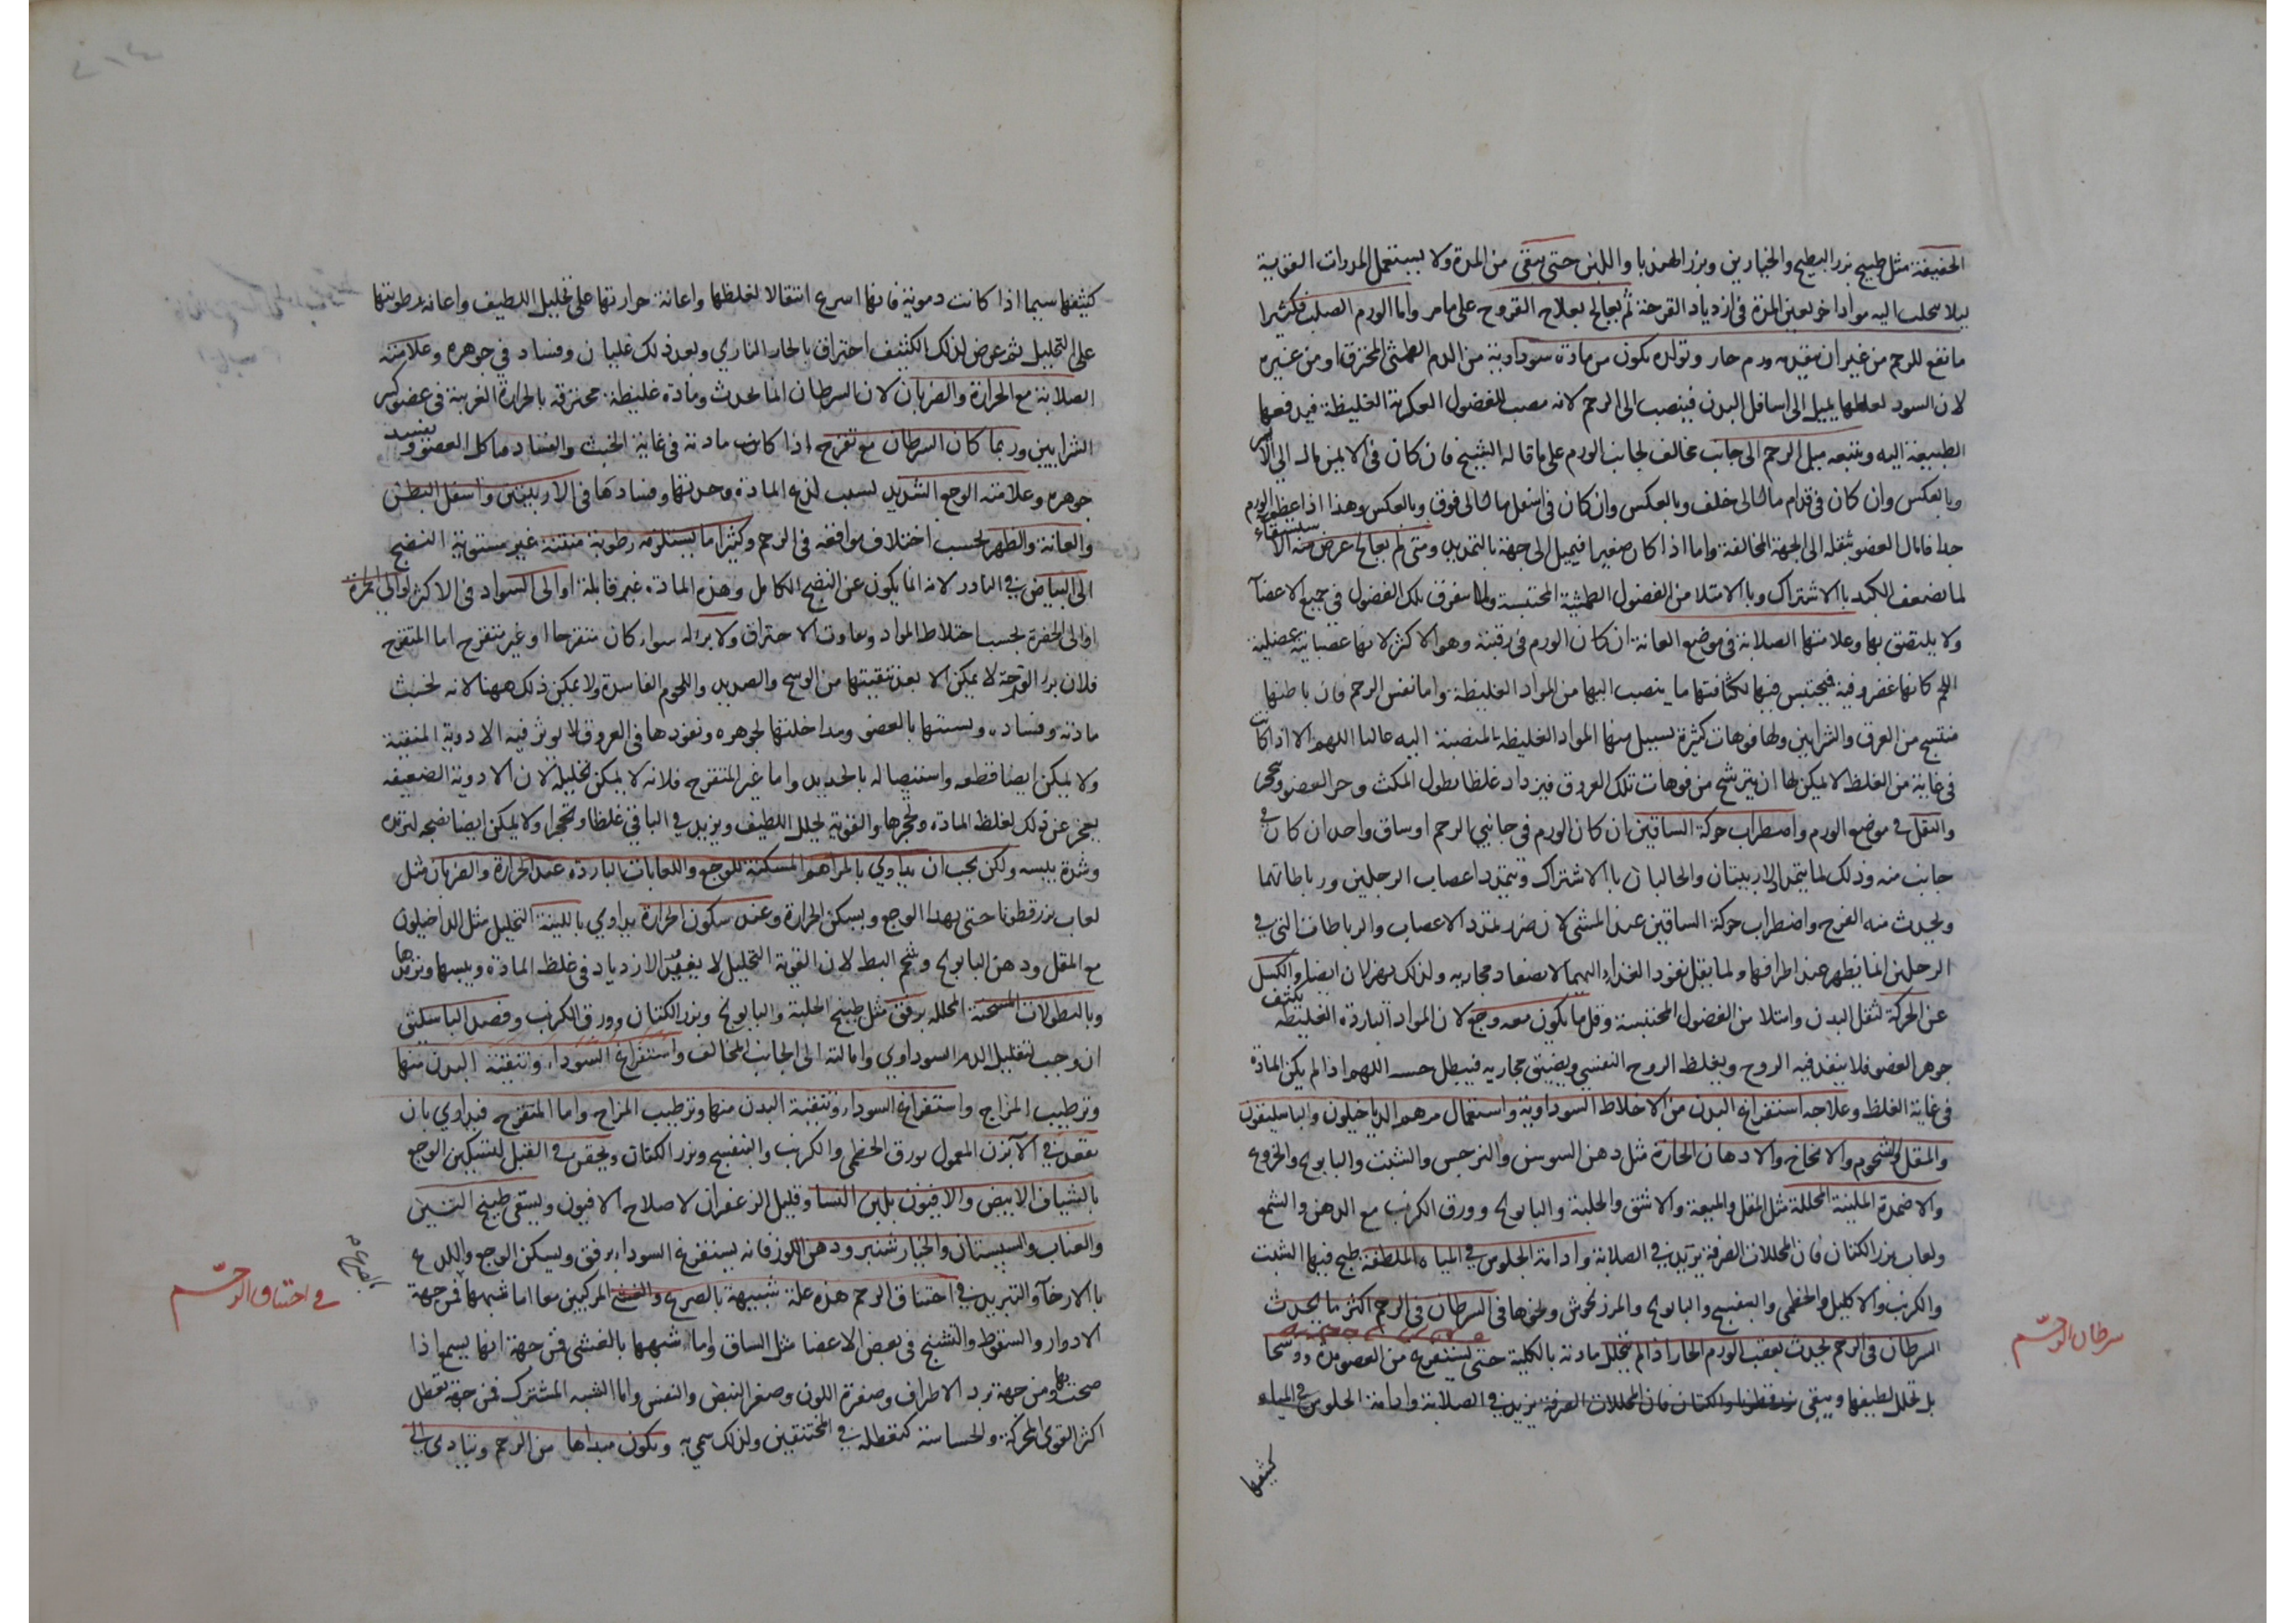 الخفيفة مثل طبيخ بزر البطيخ والخيارين وبزر الهندبا واللبن حتى ينقى من المدة ولا يستعمل المدرات القوية
ليلا يتحلب اليه مواد اخر بعين المدة في ازدياد القرحة ثم يعالج بعلاج القروح على ما مر واما الورم الصلب فكثيرا
ما تقع للرحم من غير ان يتقدمه ورم حار وتولده يكون من مادة سوداوية من الدم الطمثي المحترق او من غيره
لان السود لغلظها يميل الى اسافل البدن فينصب الى الرحم لانه مصب للفضول العكرية الغليظة فيدفعها
الطبيعة اليه ويتبعه ميل الرحم الى جانب مخالف لجانب الورم على ما قاله الشيخ فان كان في الايمن مال الى الايسر
وبالعكس وان كان في قدام مال الى خلف وبالعكس وان كان في اسفل مال الى فوق وبالعكس وهذا اذا عظم الورم
جدا فامال العضو بثقله الى الجهة المخالفة واما اذا كان صغيرا فيميل الى جهة بالتمديد ومتى لم يعالج عرض منه الاستسقاء
لما يضعف الكبد بالاشتراك وبالامتلا من الفضول الطمثية المحتبسة ولما يتفرق تلك الفضول في جميع الاعضآ
ولا يلتصق بها وعلامتها الصلابة في موضع العانة ان كان الورم في رقبته وهو الاكثر لانها عصبانية عضلية
اللحم كانها غضروفية فيحتبس فيها لكثافتها ما ينصب اليها من المواد الغليظة واما نفس الرحم فان باطنها
منتسج من العرق والشرايين ولها فوهات كثيرة يسيل منها المواد الغليظة المنصبة اليه غالبا اللهم الا اذا كانت
في غاية من الغلظ لا يمكن لها ان يترشح من فوهات تلك العروق فيزداد غلظا بطول المكث وحر العضو وتحجر
والثقل في موضع الورم واضطراب حركة الساقين ان كان الورم في جانبي الرحم او ساق واحد ان كان في
جانب منه وذلك لما يتمدد الاربيتان والحالبان بالاشتراك ويتمدد اعصاب الرجلين ورباطاتهما
ويحدث منه العرج واضطراب حركة الساقين عند المشي لان ضرر تمدد الاعصاب والرباطات التي في
الرجلين انما يظهر عند اطرافها ولما يقل نفوذ الغذاء اليهما لانضغاد مجاريه ولذلك يهزلان ايضا والكسل
عن الحركة لثقل البدن وامتلا من الفضول المحتبسة وقل ما يكون معه وجع لان المواد الباردة الغليظة يكثف
جوهر العضو فلا ينفذ فيه الروح ويغلظ الروح النفسي ويضيق مجاريه فيبطل حسه اللهم اذا لم يكن المادة
في غاية الغلظ وعلاجه استفراغ البدن من الاخلاط السوداوية واستعمال مرهم الدياخيلون والباسليقون
والمقل والشحوم والامخاخ والادهان الحارة مثل دهن السوسن والنرجس والشبت والبابونج والخروع
والاضمدة الملينة المحللة مثل المقل والميعة والاشق والحلبة والبابونج وورق الكرنب مع الدهن والشمع
ولعاب بزر الكتان فان المحللات الصرفة يزيد في الصلابة وادامة الجلوس في المياه الملطفة طبخ فيها الشبت
والكرنب والاكليل والخطمي والبنفسج والبابونج والمرزنجوش ونحوها في السرطان في الرحم اكثر ما يحدث
السرطان في الرحم يحدث بعقب الورم الحار اذا لم يتحلل مادته بالكلية حتى يستفرغ من العضو
بل تحلل لطيفها ويبقى بزرقطونا والكتان فان المحللات الصرفة يزيد في الصلابة وادامة الجلوس في المياه
كثيفها
سرطان الرحم
كثيفها سيما اذا كانت دموية فانها اسرع انتقالا لغلظها واعانة حرارتها على تحليل اللطيف واعانة رطوبتها
على التحليل ثم عرض لذلك الكثيف احتراق بالحار الناري وبعد ذلك غليان وفساد في جوهره وعلامته
الصلابة مع الحرارة والضربان لان السرطان انما يحدث ومادة غليظة محترقة بالحرارة الغريبة في عضو كثير
الشرايين وربما كان السرطان مع تقرح اذا كانت مادته في غاية الخبث والفساد فياكل العضو ويفسد
جوهره وعلامته الوجع الشديد لسبب لذع المادة وحدتها وفسادها في الاربيتين واسفل البطن
والعانة والظهر بحسب اختلاف مواقعه في الرحم وكثيرا ما يستلزمه رطوبة منتنة غير مستوية النضج
الى البياض في النادر لانه انما يكون عن النضج الكامل وهذه المادة غير قابلة او الى السواد في الاكثر او الى الحمرة
او الى الخضرة بحسب اختلاط المواد وتفاوت الاحتراق ولا برء له سواء كان متقرحا او غير متقرح اما المتقرح
فلان برء القرحة لا يمكن الا بعد تنقيتها من الوسخ والصديد واللحوم الفاسدة ولا يمكن ذلك ههنا لانه لخبث
مادته وفساده وتشبثها بالعضو ومداخلتها لجوهره ونفوذها في العروق لا يوثر فيه الادوية المنقية
ولا يمكن ايضا قطعه واستيصاله بالحديد واما غير المتقرح فلانه لا يمكن تحليله لان الادوية الضعيفة
يعجز عن ذلك لغلظ المادة وتحجرها والقوية تحلل اللطيف ويزيد في الباقي غلظا وتحجرا ولا يمكن ايضا نضجه لبرده
وشدة يبسه ولكن يجب ان يداوي بالمراهم المسكنة للوجع واللعابات الباردة عند الحرارة والضربان مثل
لعاب بزرقطونا حتى يهدا الوجع ويسكن الحرارة وعند سكون الحرارة يداوي باللينة التحليل مثل الداخيلون
مع المقل ودهن البابونج وشحم البط لان القوية التحليل لا يفيد الا زدياد في غلظ المادة ويبسها وتمددها
وبالنطولات المسخنة المحللة برفق مثل طبيخ الحلبة والبابونج وبزر الكتان وورق الكرنب وفصد الباسليق
ان وجب لتقليل الدم السوداوي وامالته الى الجانب المخالف واستفراغ السوداء وتنقية البدن منها
وترطيب المزاج واستفراغ السوداء وتنقية البدن منها وترطيب المزاج واما المتقرح فيداوي بان
تقعد في الآبزن المعمول بورق الخطمي والكرنب والبنفسج وبزر الكتان ويحقن في القبل لتسكين الوجع
بالشياف الابيض والافيون بلبن النسا وقليل الزعفران لاصلاح الافيون ويسقى طبيخ التين
والعناب والسبستان والخيار شنبر ودهن اللوز فانه يستفرغ السوداء برفق ويسكن الوجع واللذع
بالارخآ والتبريد في اختناق الرحم هذه علة شبيهة بالصرع والغشي المركبين معا اما شبهها فمن جهة
الادوار والسقوط والتشنج في بعض الاعضا مثل الساق واما شبهها بالغشي فمن جهة انها يسمع اذا
صحت بها ومن جهة برد الاطراف وصفرة اللون وصغر النبض والنفس واما الشبه المشترك فمن جهة تعطل
اكثر القوى المحركة والحساسة كتعطله في المختنقين ولذلك سمي به ويكون مبداها من الرحم ويتادي الى
بالصرع
في اختناق الرحم